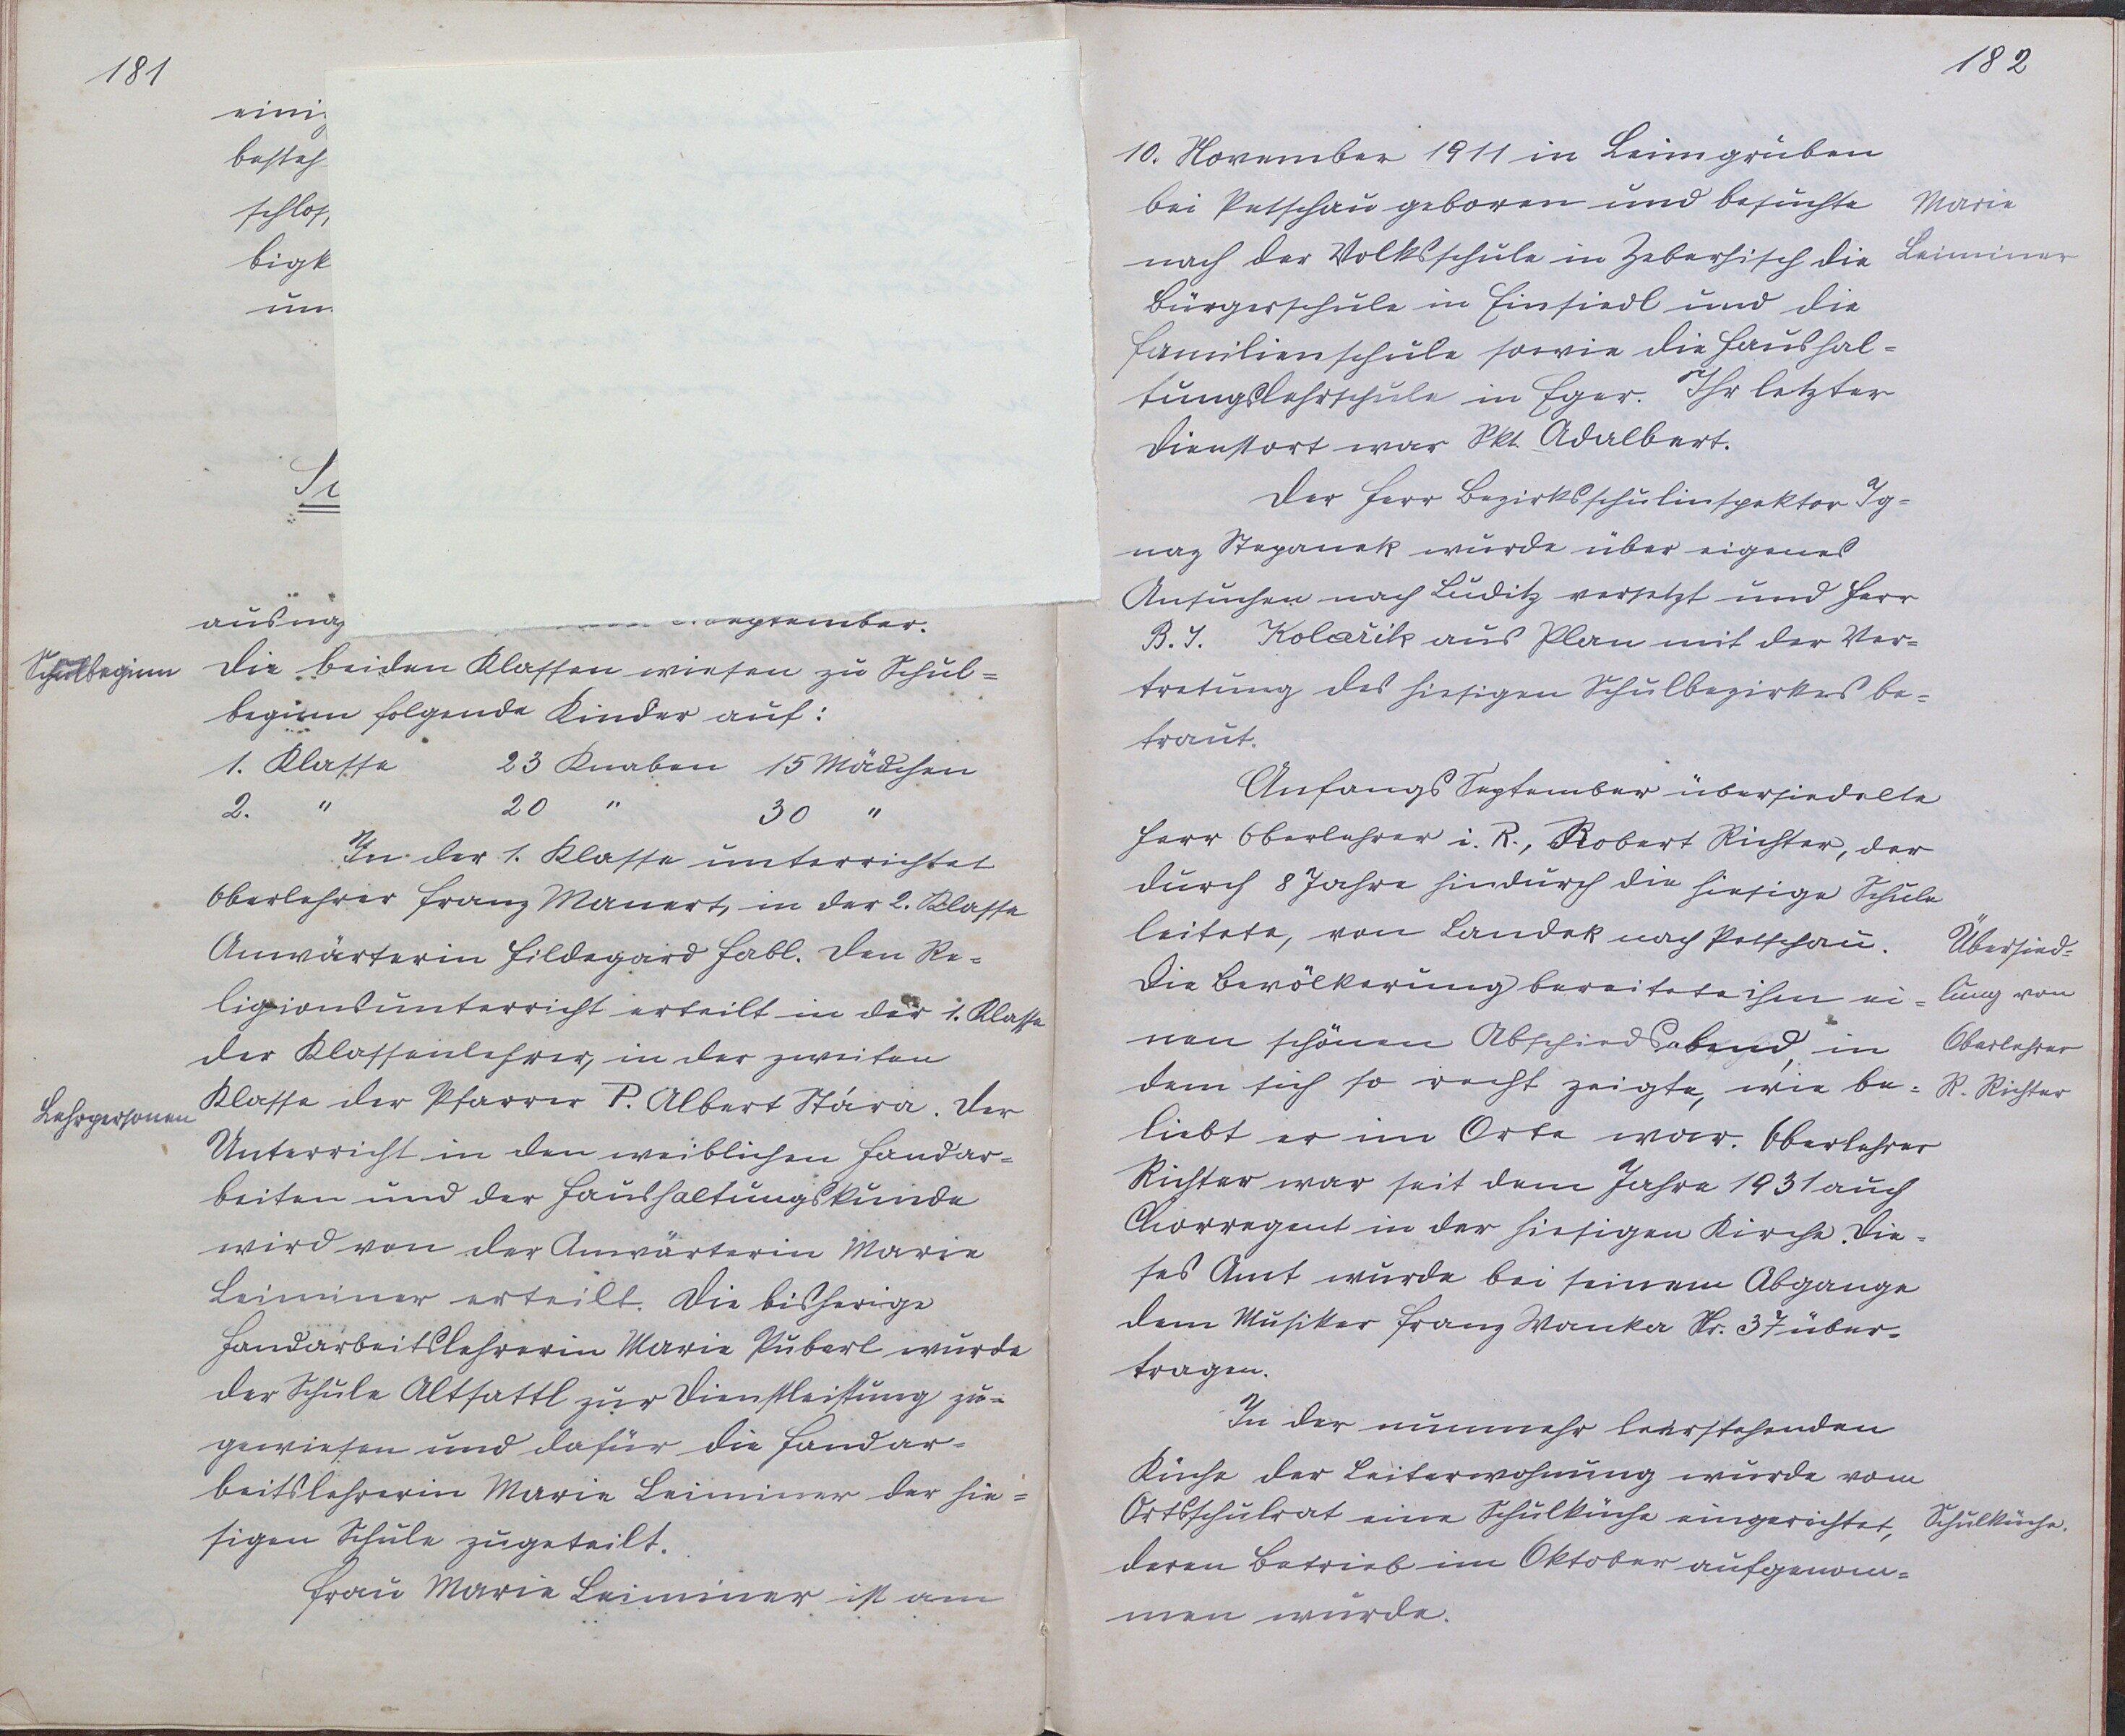 181
eini
besteh
schlos
bigk
un
ausnaz
September.
Schulbeginn
Die beiden Klassen wiesen zu Schul=
beginn folgende Kinder auf:
1. Klasse 23 Knaben 15 Mädchen
2. " 20 " 30 "
In der 1. Klasse unterrichtet
Oberlehrer Franz Manert, in der 2. Klasse
Anwärterin Hildegard Habl. Den Re=
ligionsunterricht erteilt in der 1. Klasse
der Klassenlehrer, in der zweiten
Lehrpersonen
Klasse der Pfarrer P. Albert Stára. Der
Unterricht in den weiblichen Handar=
beiten und der Haushaltungskunde
wird von der Anwärterin Marie
Leiminer erteilt. Die bisherige
Handarbeitslehrerin Marie Puberl wurde
der Schule Altsattl zur Dienstleistung zu=
gewiesen und dafür die Handar=
beitslehrerin Marie Leiminer der hie=
sigen Schule zugeteilt.
Frau Marie Leiminer ist am
182
10. November 1911 in Leimgruben
bei Petschau geboren und besuchte
nach der Volksschule in Zeberhisch die
Bürgerschule in Einsiedl und die
Familienschule sowie die Haushal=
tungslehrschule in Eger. Ihr letzter
Dienstort war Skt. Adalbert.
Marie
Leiminer
Der Herr Bezirksschulinspektor Ig=
naz Stepanek wurde über eigenes
Ansuchen nach Luditz versetzt und Herr
B. I. Kolařik aus Plan mit der Ver=
tretung des hiesigen Schulbezirkes be=
traut.
Anfangs September übersiedelte
Herr Oberlehrer i. R., Robert Richter, der
durch 8 Jahre hindurch die hiesige Schule
leitete, von Landek nach Petschau.
Die Bevölkerung bereitete ihm ei=
nen schönen Abschiedsabend, in
dem sich so recht zeigte, wie be=
liebt er im Orte war. Oberlehrer
Richter war seit dem Jahre 1931 auch
Chorregent in der hiesigen Kirche. Die=
ses Amt wurde bei seinem Abgange
dem Musiker Franz Wanka Nr. 37 über=
tragen.
Übersied=
lung von
Oberlehrer
R. Richter
In der nunmehr leerstehenden
Küche der Leiterwohnung wurde vom
Ortsschulrat eine Schulküche eingerichtet,
deren Betrieb im Oktober aufgenom=
men wurde.
Schulküche.